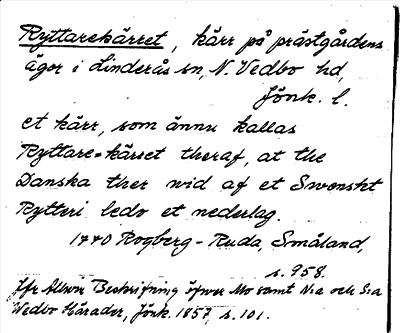 Ryttarekärret, kärr på prästgårdens
ägor i Linderås sn, N. Vedbo hd,
Jönk. l.
et kärr, som ännu kallas
Ryttare-kärret theraf, at the
Danska ther wid af et Swenskt
Rytteri ledo et nederlag.
1770 Rogberg - Ruda, Småland,
s. 958.
Jfr Allvin Beskrifning öfver Mo samt N:a och S:a
Wedbo Härader, Jönk. 1857, s. 101.